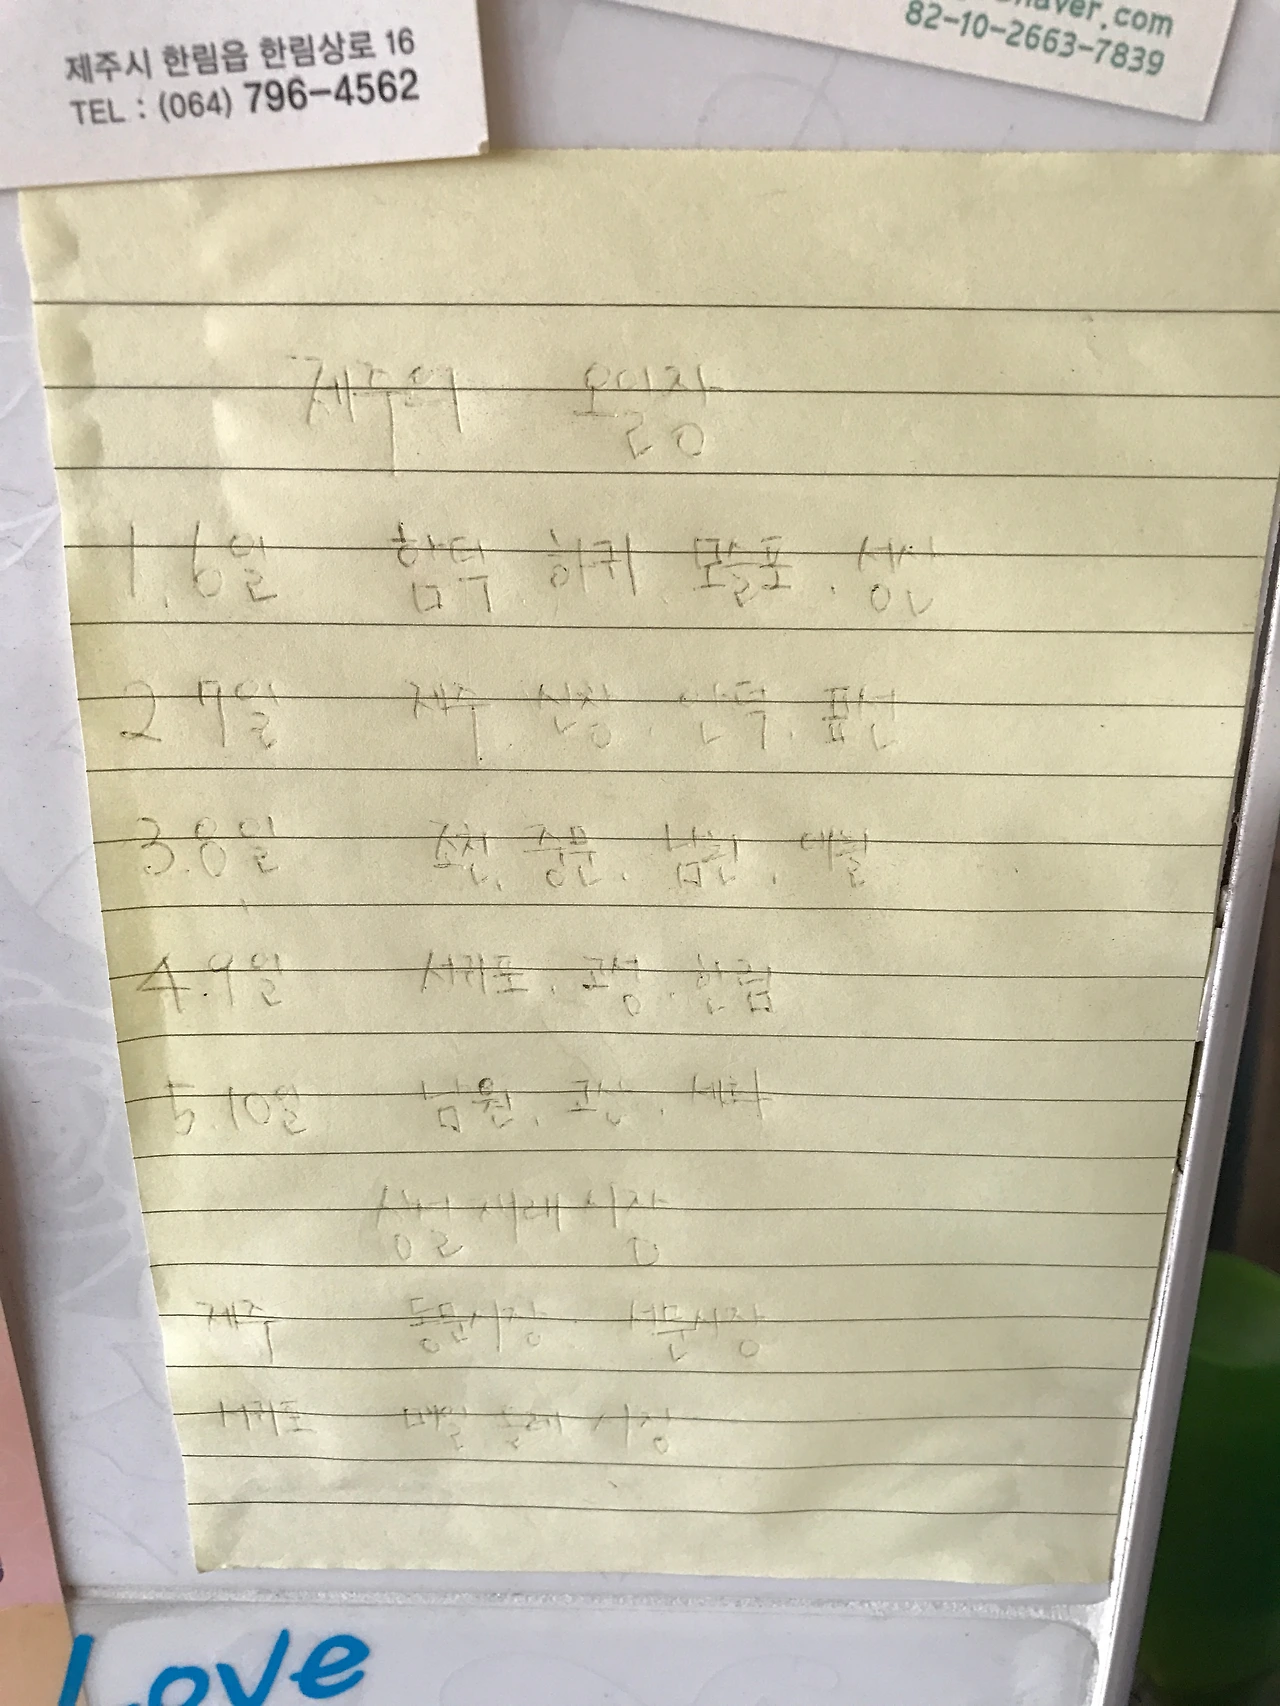 제주시 한림읍 한림상로 16
TEL : (064) 796-4562
naver.com
82-10-2663-7839
제주의 오일장
1.6일 함덕. 하귀. 모슬포. 성산
2.7일 제주. 신창. 안덕. 표선
3.8일 조천. 중문. 남원.
4.9일 서귀포. 고성. 한림
5.10일 남원. 고산. 세화
상설 재래 시장
제주 동문시장. 서문시장
서귀포 매일 올레 시장
Love